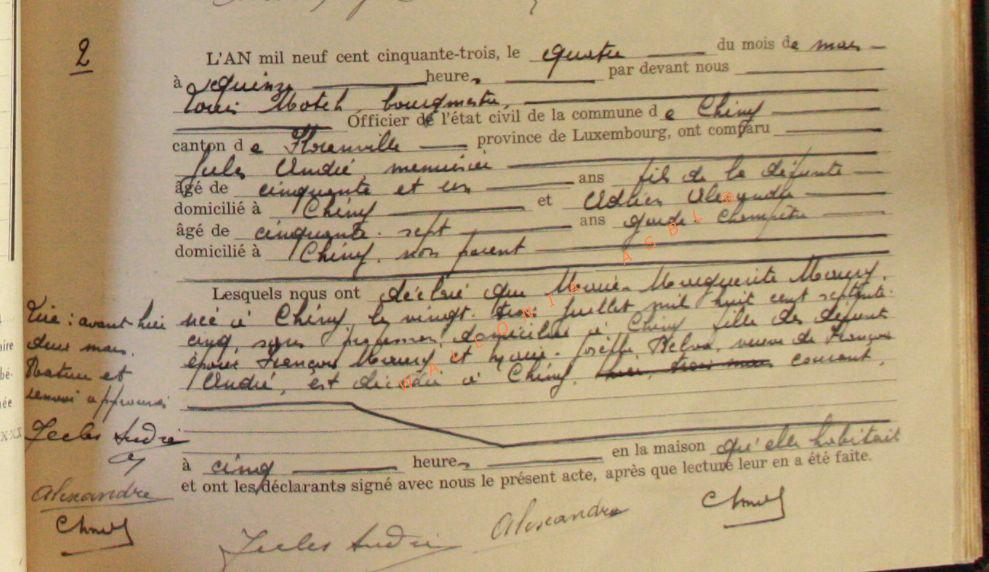 2
L'AN mil neuf cent cinquante-trois, le quatre du mois de mars
à quinze heures par devant nous
Louis bourgmestre,
Officier de l'état civil de la commune de Chiny
canton de Florenville province de Luxembourg, ont comparu
Jules André, menuisier
âgé de cinquante et un ans fils de la défunte
domicilié à Chiny et Alexandre
âgé de cinquante-sept ans garde-champêtre
domicilié à Chiny, non parent
Lesquels nous ont déclaré que Marie-Marguerite
née à Chiny, le vingt-trois juillet mil huit cent septante-
cinq, sans profession, domiciliée à Chiny, fille des défunts
époux François et Marie-Josèphe veuve de François
André, est décédée à Chiny, courant,
à cinq heures en la maison qu'elle habitait
et ont les déclarants signé avec nous le présent acte, après que lecture leur en a été faite.
Lire : avant-hier
deux mars.
Rature et
renvoi approuvés
Jules André
Alexandre
Jules André
Alexandre
ASBL